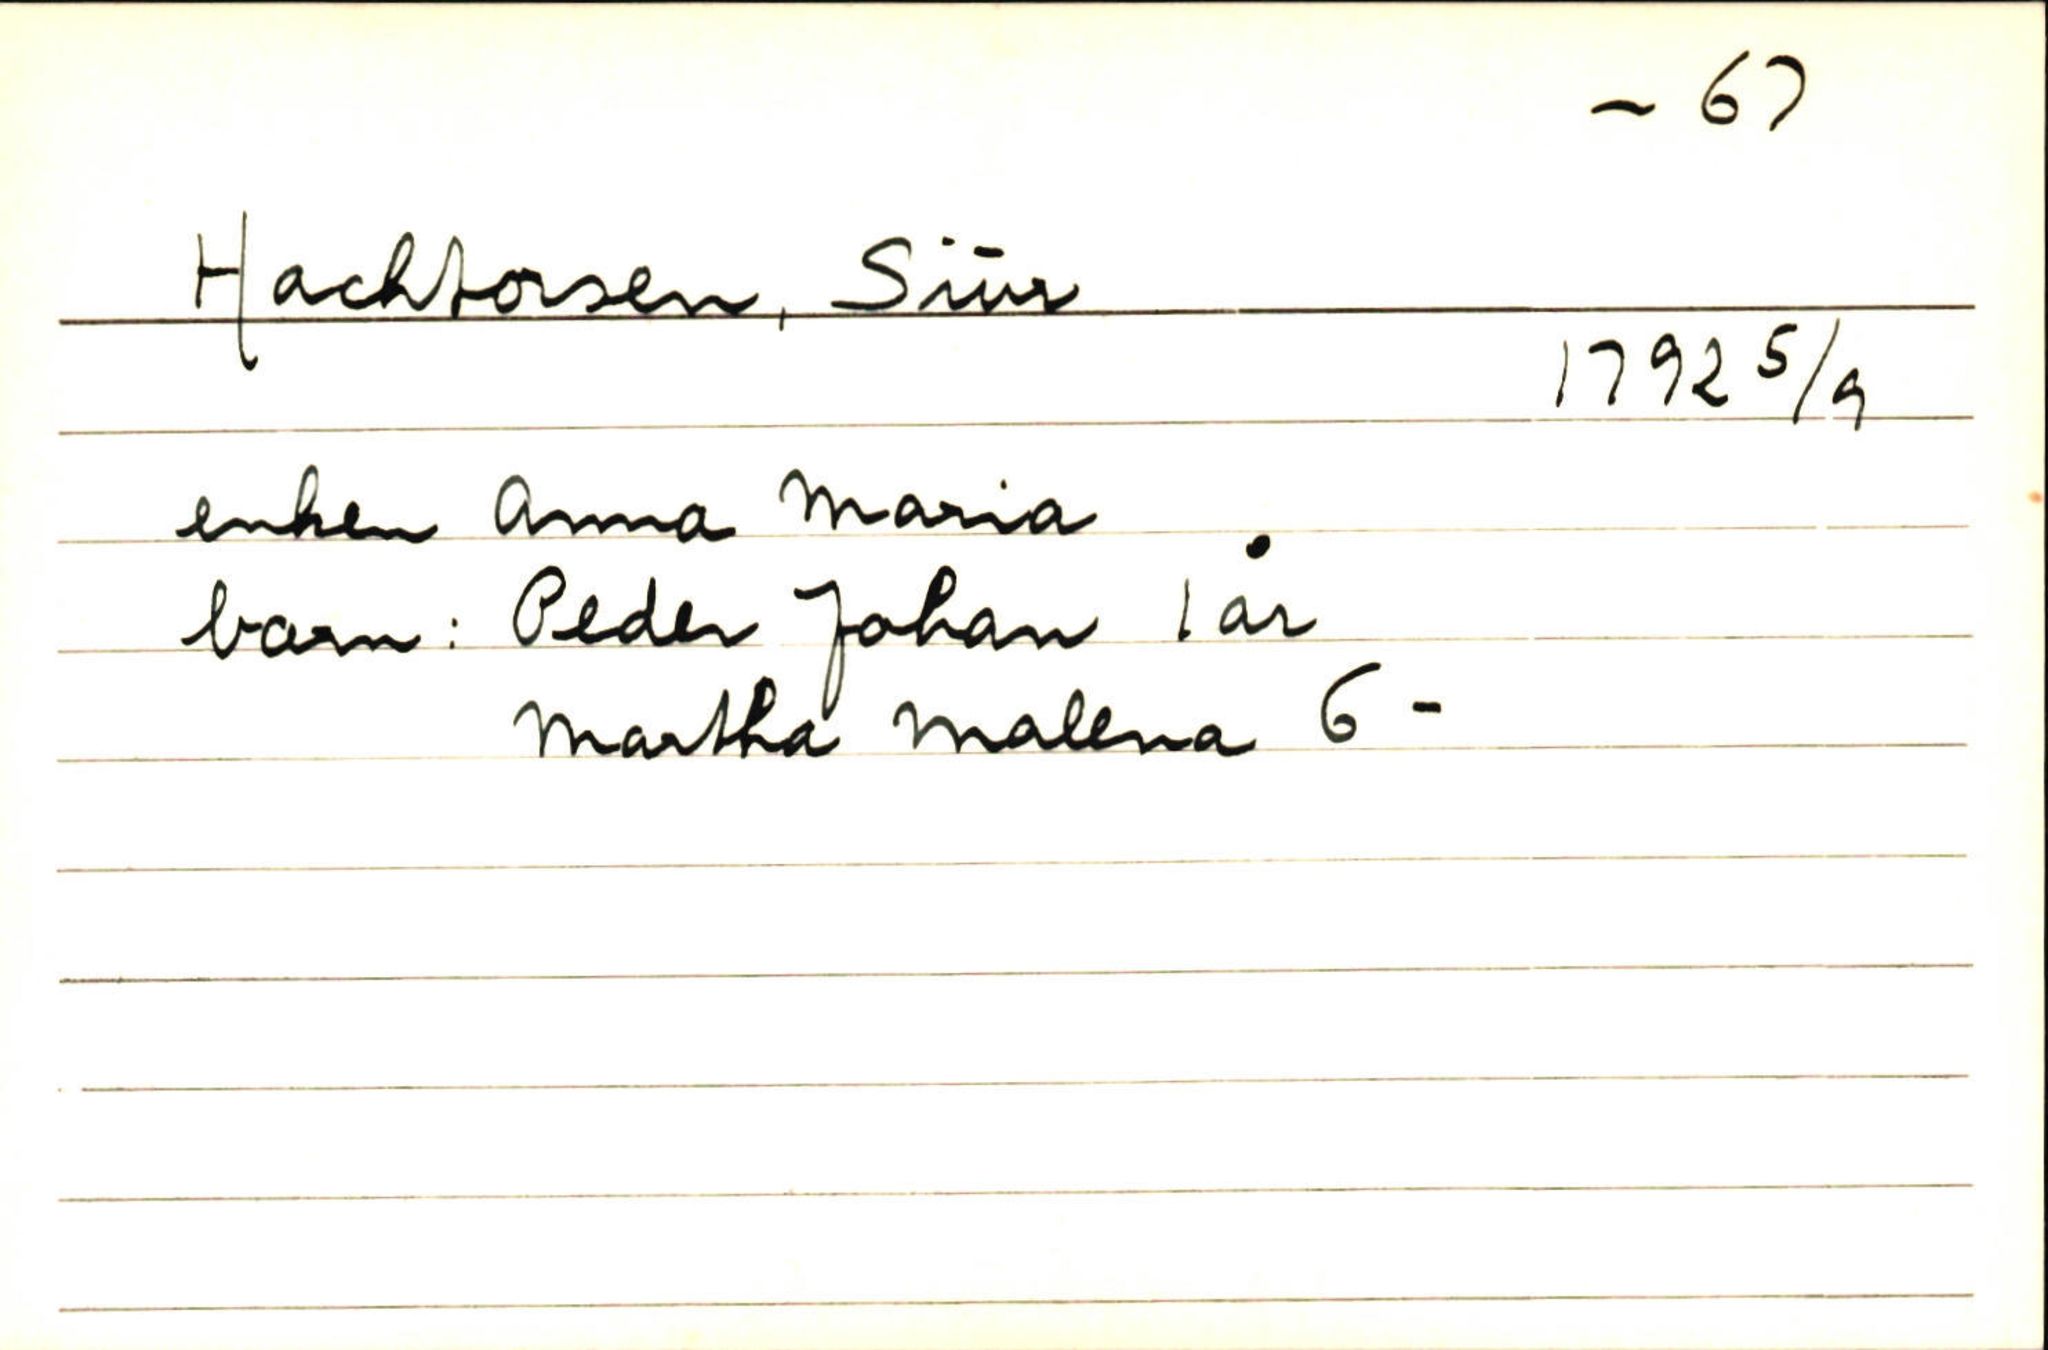 ~ 67
Hachtorsen, Siur
1792 5/9
enken Anna Maria
barn: Peder Johan 1 år
Martha Malena 6 -